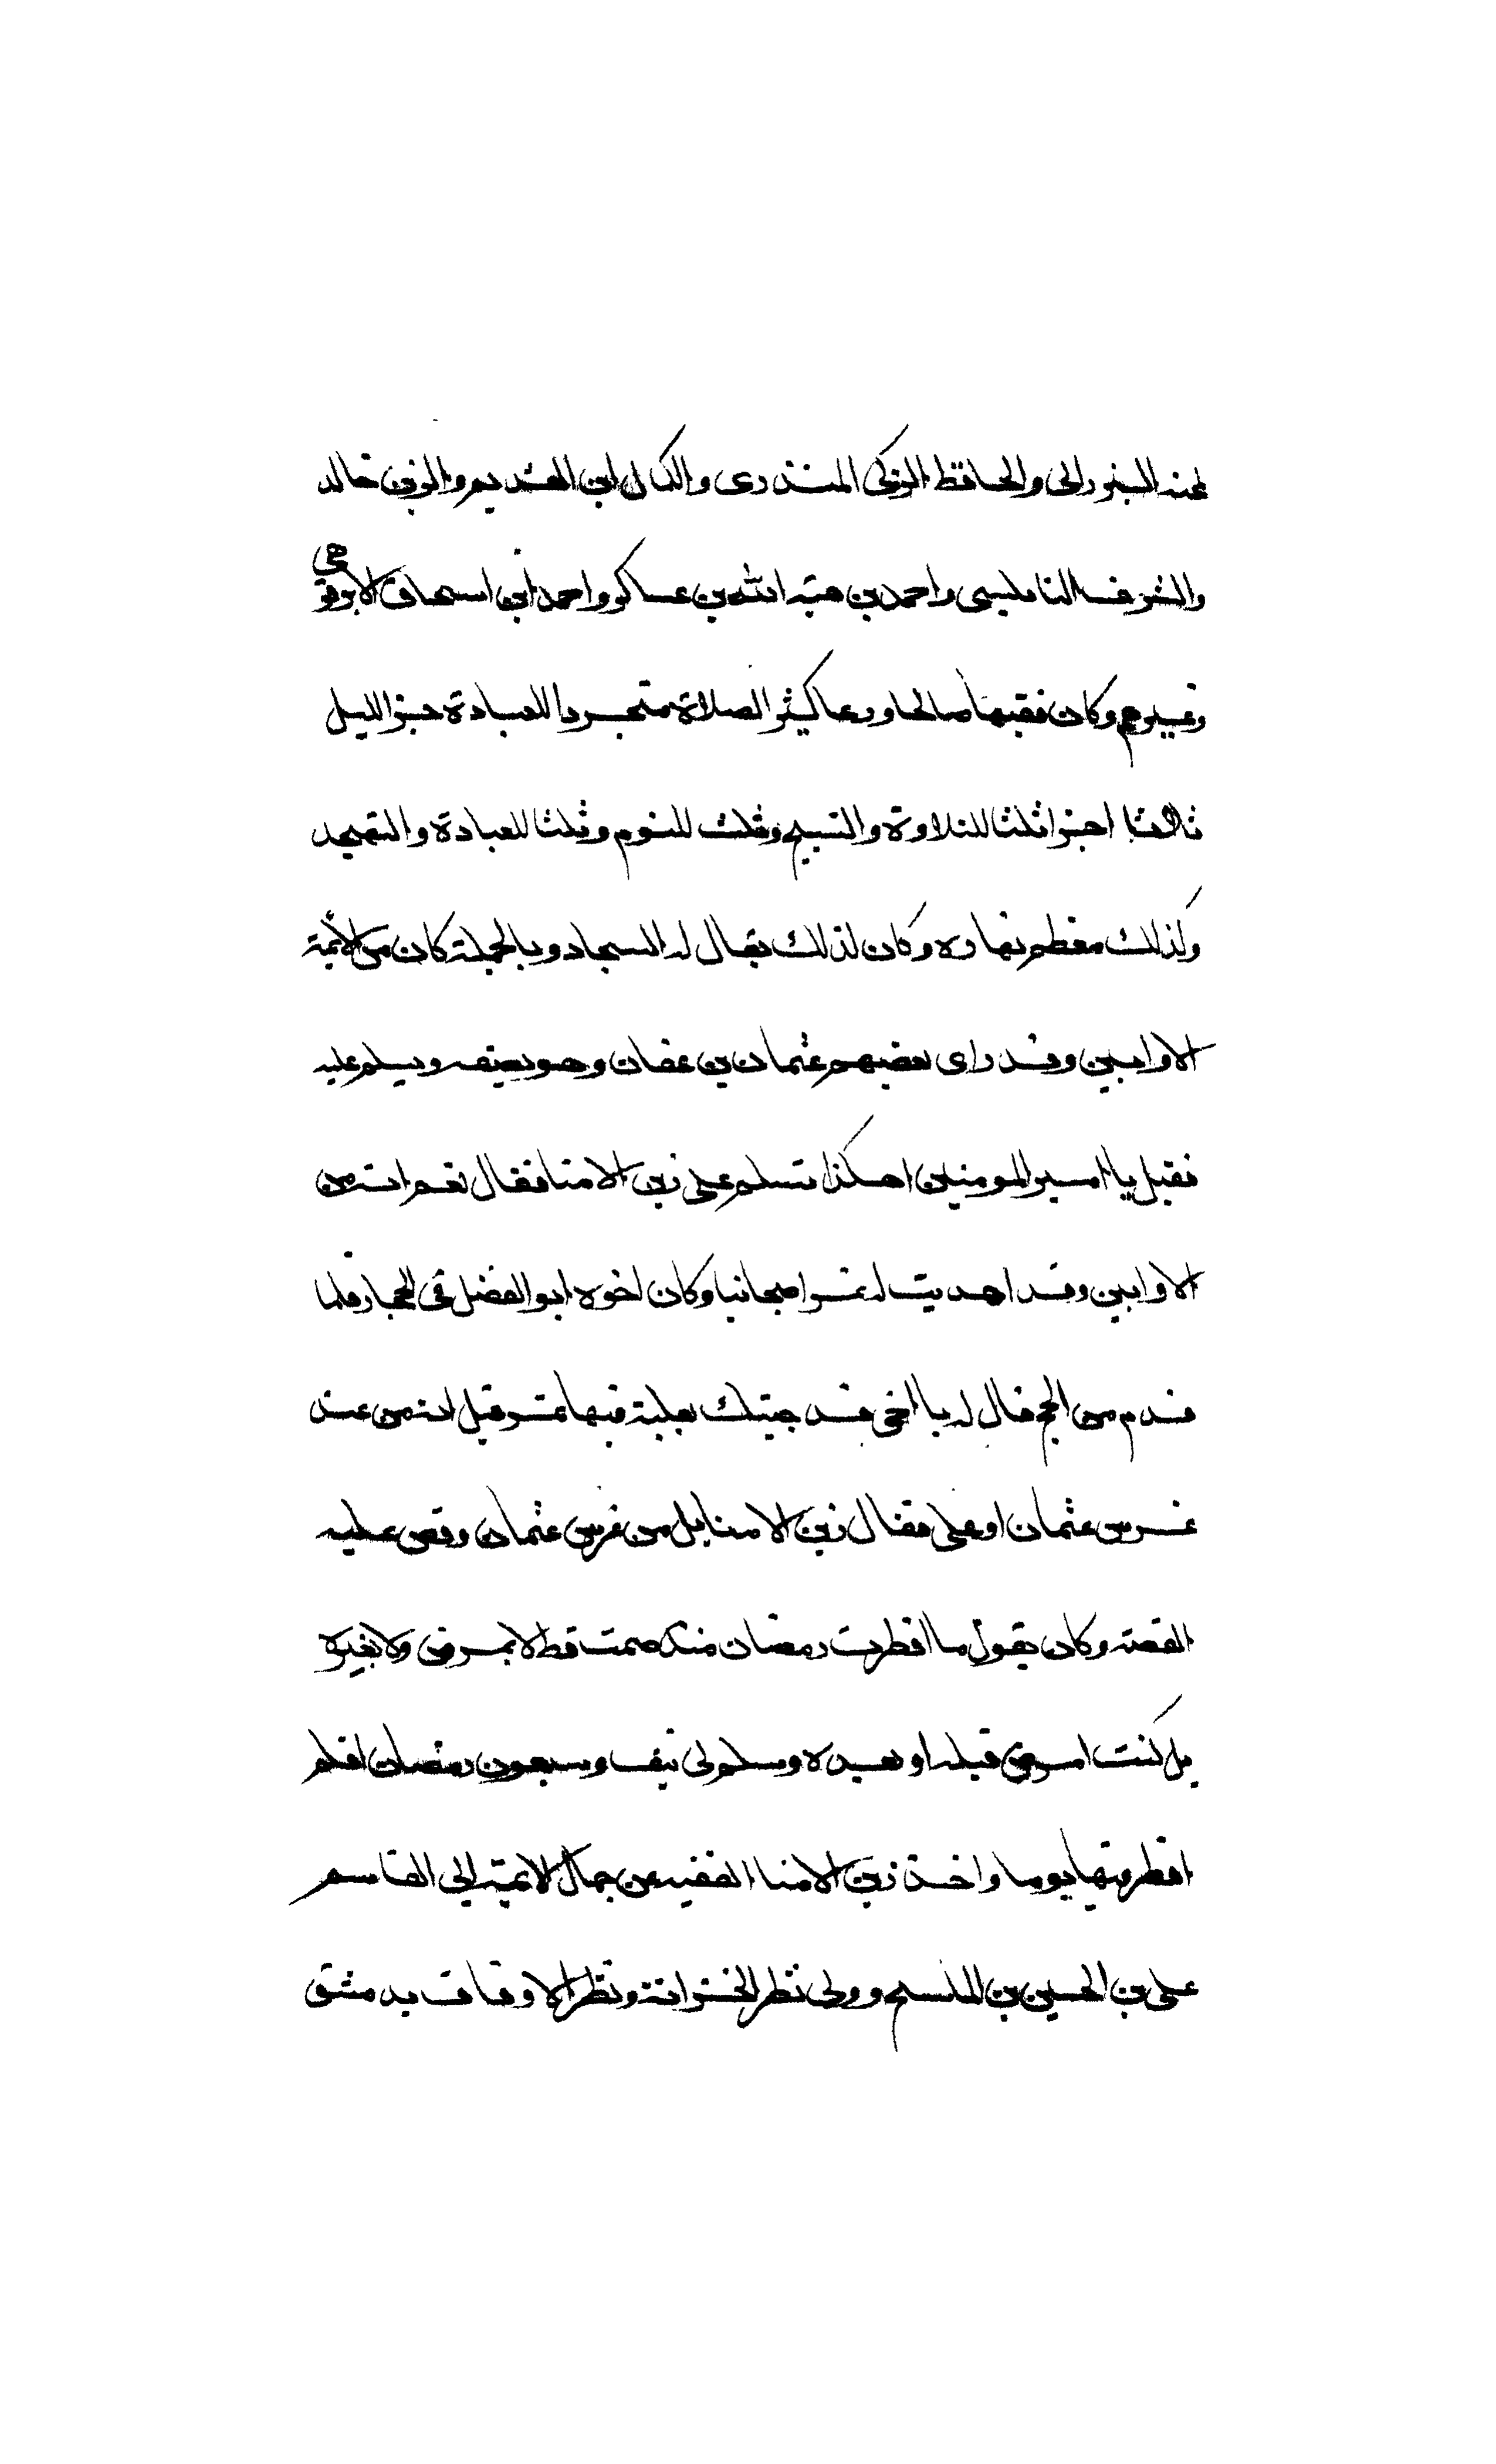 عنه البنرالى والحافظ الزكى المنذرى والكمال ابن العديم والزين خالد
والشرف النابلسى واحمد بن هبة الله بن عساكر واحمد ابن اسحاق الابرقوهى
وغيرهم وكان فقيها صالحا ورعا كثير الصلاة متجردا للعبادة جزا الليل
ثلاثة اجزا ثلثا للتلاوة والتسبيح وثلث للنوم وثلثا للعبادة والتهجد
وكذلك معظم نهاره وكان لذلك يقال له السجاد وبالجملة كان من الائمة
الاوابين وقد راى بعضهم عثمان بن عفان وهو يصفه ويسلم عليه
فقيل يا امير المومنين اهكذا تسلم على زين الامنا فقال نعم انه من
الاوابين وقد اهديت له تمرا صيحانيا وكان اخوه ابو الفضل فى الحجاز فلما
قدم من الحج قال له يا اخى قد جيتك بعلبة فيها تمر قيل انه من عند
غرس عثمان او على فقال زين الامنا بل من غرس عثمان وقص عليه
القصة وكان يقول ما افطرت رمضان منذ صمت قط لا بمرض ولا بغيره
بل كنت امرض قبله او بعده وسلم لى نيف وسبعون رمضان افلم
افطر منها يوما واخذ زين الامنا الفقيه عن جمال الائمة الى القاسم
على بن الحسين بن الماسح وولى نظر الخزانة ونظر الاوقاف بدمشق